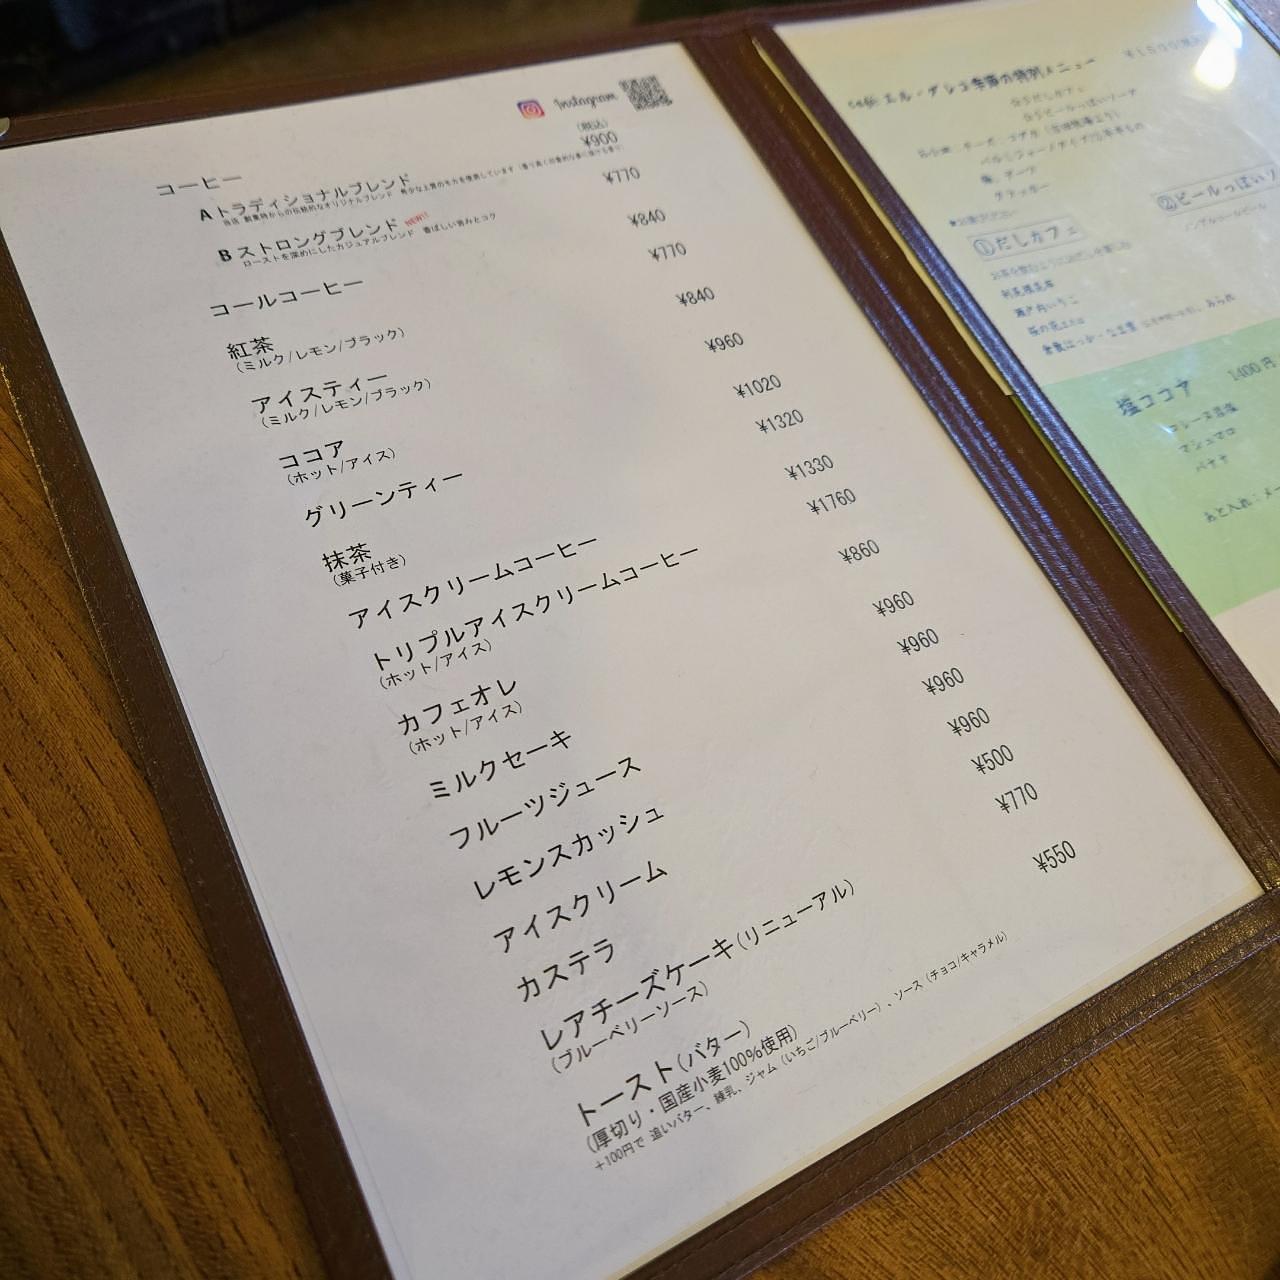 Instagram
(税込)
コーヒー
A トラディショナルブレンド ¥900
当店 創業時からの伝統的なオリジナルブレンド 希少な上質のモカを使用しています
B ストロングブレンド NEW!! ¥770
ローストを深めにしたカジュアルブレンド 香ばしい苦みとコク
コールコーヒー ¥840
紅茶 ¥770
(ミルク/レモン/ブラック)
アイスティー ¥840
(ミルク/レモン/ブラック)
ココア ¥960
(ホット/アイス)
グリーンティー ¥1020
抹茶 ¥1320
(菓子付き)
アイスクリームコーヒー ¥1330
トリプルアイスクリームコーヒー ¥1760
(ホット/アイス)
カフェオレ ¥860
(ホット/アイス)
ミルクセーキ ¥960
フルーツジュース ¥960
レモンスカッシュ ¥960
アイスクリーム ¥960
カステラ ¥500
レアチーズケーキ(リニューアル) ¥770
(ブルーベリーソース)
トースト(バター) ¥550
(厚切り・国産小麦100%使用)
+100円で 追いバター、練乳、ジャム(いちご/ブルーベリー)、ソース(チョコ/キャラメル)
季節の特別メニュー
①だしカフェ
利尻根昆布
瀬戸内いちご
②ビールっぽい
ノンアルコールビール
塩ココア 1400円
マシュマロ
バナナ